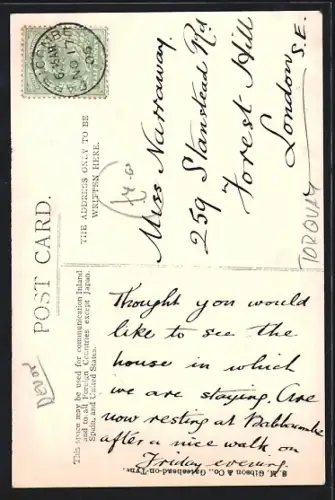 POST CARD.
THE ADDRESS ONLY TO BE
WRITTEN HERE.
This space may be used for communication Inland
and to all Foreign Countries except Japan,
Spain, and United States.
Miss Narraway
259 Stanstead Rd
Forest Hill
London
S.E.
TORQUAY
Devon
Thought you would
like to see the
house in which
we are staying. Are
now resting at Babbacombe
after a nice walk on
Friday evening.
S. M. Gibson & Co., Gateshead-on-Tyne.